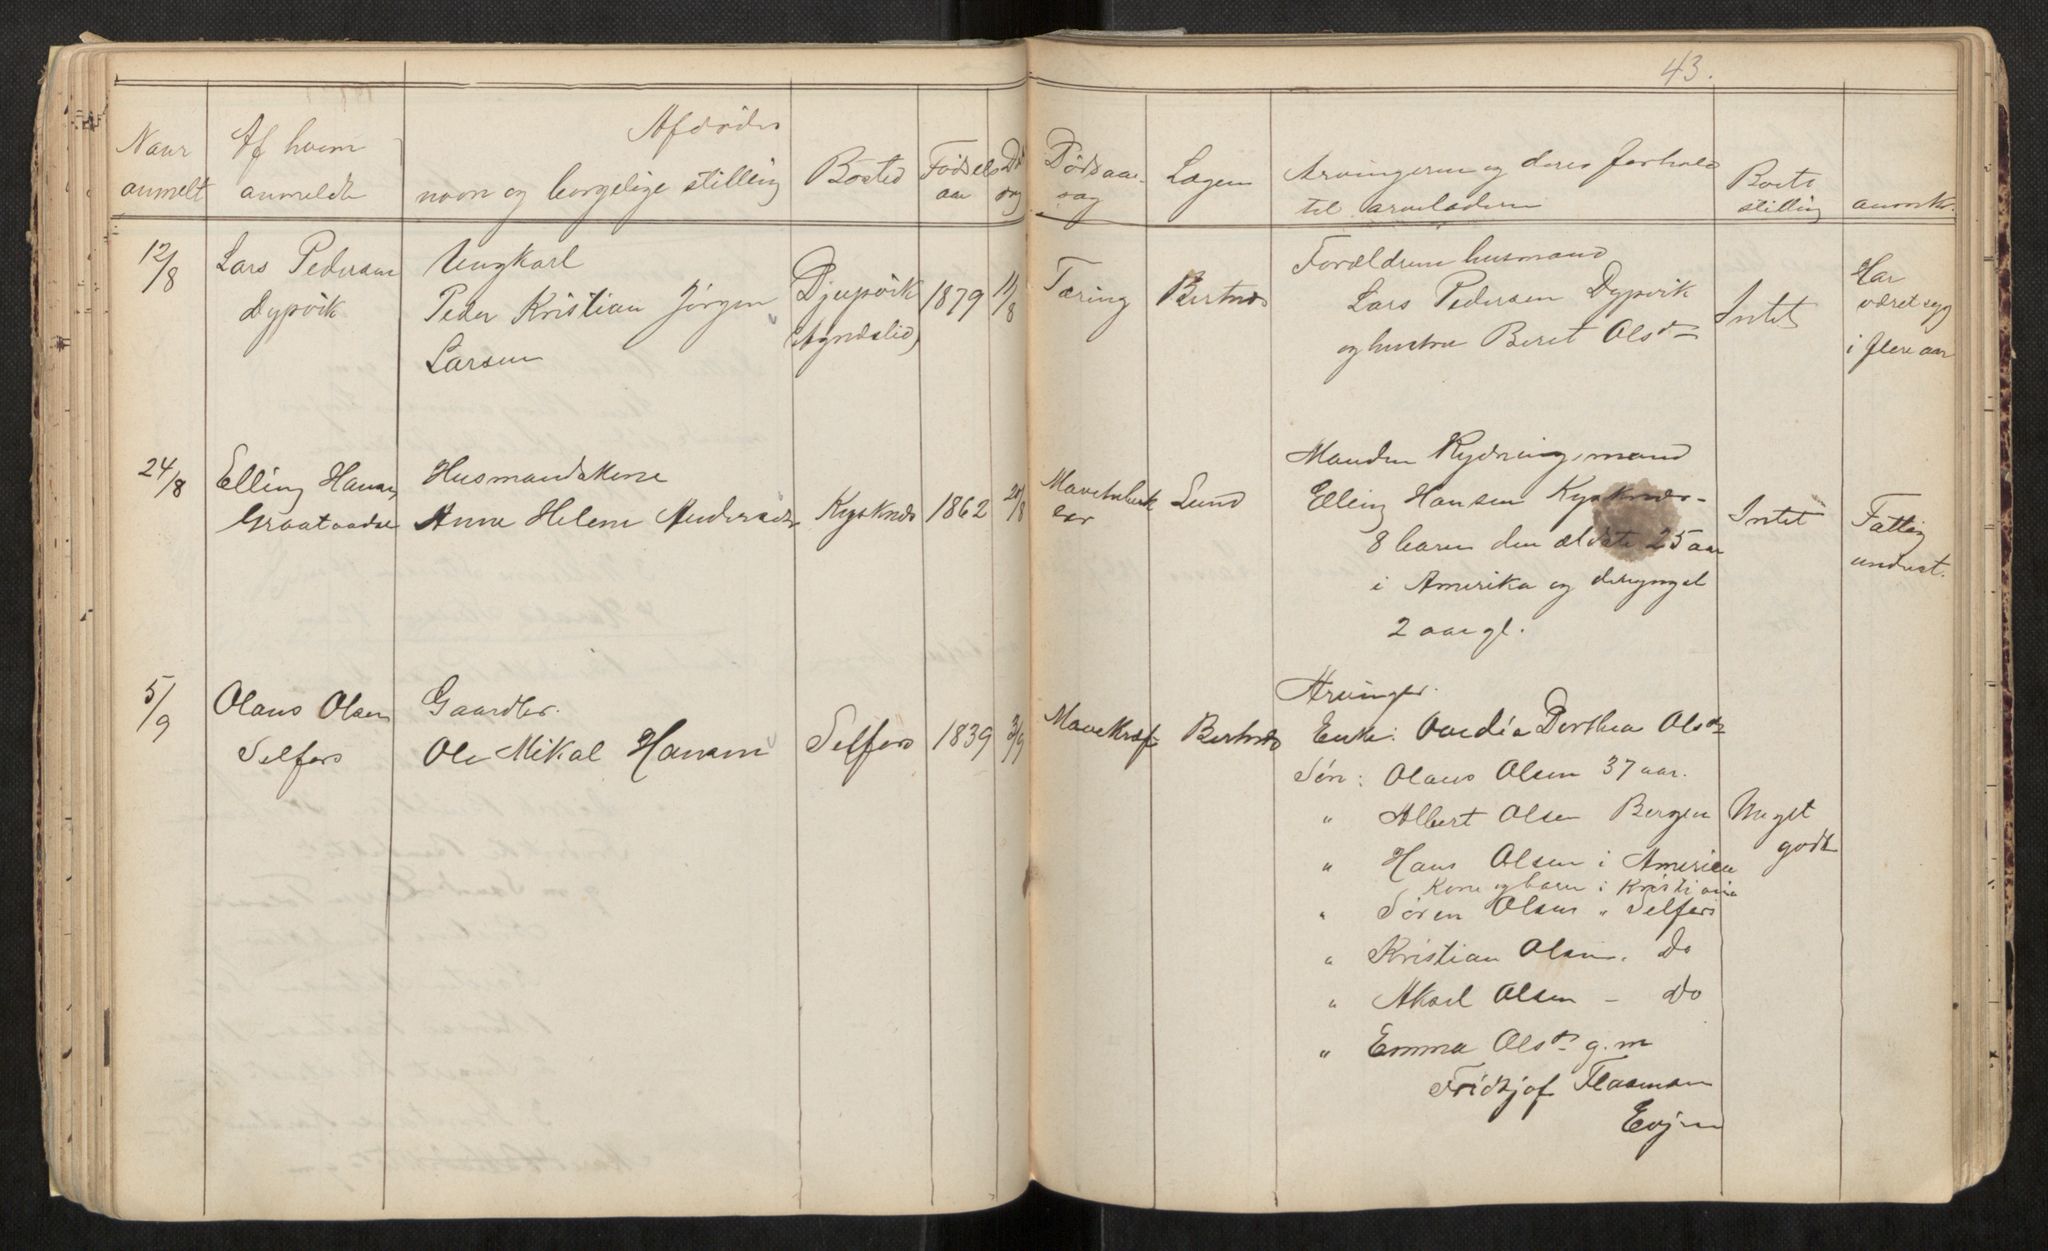 43.
Naar anmelt
Af hvem anmeldt
Afdødes navn og borgelige stilling
Bosted
Fødsels aar
Død
Dødsaarsag
Lægen
Arvingerne og deres forhold til arveladeren
Boets stilling
anmerk.
12/8
Lars Pedersen
Dypvik
Ungkarl
Peder Kristian Jørgen
Larsen
Djupvik
1879
11/8
Tæring
Bertnæs
Forældrene husmand
Lars Pedersen Dypvik
og hustru Beret Olsdtr
Intet
Har
været syg
i flere aar
24/8
Elling Hansen
Graataadal
Husmandskone
Anne Helene Andersdtr
Kysknæs
1862
20/8
Lund
Manden Rydningsmand
Elling Hansen Kysknæs
8 barn den ældste 25 aar
i Amerika og den yngst
2 aar gl.
Intet
Fattig
underst.
5/9
Olaus Olsen
Selfors
Gaardbr.
Ole Mikal Hansen
Selfors
1839
3/9
Mavekræft
Bertnæs
Arvinger.
Enke: Dorthea Olsdtr
Søn: Olaus Olsen 37 aar.
" Albert Olsen Bergen
" Hans Olsen i America
Kone og barn i Kristiania
" Søren Olsen " Selfors
" Kristian Olsen. Do
" Aksel Olsen - Do
" Emma Olsdtr g.m
Fridtjof
Evjen
Meget
godt